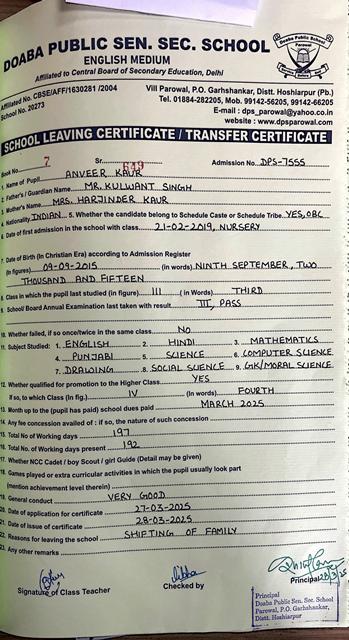 DOABA PUBLIC SEN. SEC. SCHOOL
ENGLISH MEDIUM
Affiliated to Central Board of Secondary Education, Delhi
Affiliated No. CBSE/AFF/1630281 /2004
School No. 20273
Vill Parowal, P.O. Garhshankar, Distt. Hoshiarpur (Pb.)
Tel. 01884-282205, Mob. 99142-56205, 99142-66205
E-mail : dps_parowal@yahoo.co.in
website : www.dpsparowal.com
SCHOOL LEAVING CERTIFICATE / TRANSFER CERTIFICATE
Book No. 7 Sr. 649 Admission No. DPS-7555
1. Name of Pupil ANVEER KAUR
2. Father's / Guardian Name MR. KULWANT SINGH
3. Mother's Name MRS. HARJINDER KAUR
4. Nationality INDIAN 5. Whether the candidate belong to Schedule Caste or Schedule Tribe YES, OBC
6. Date of first admission in the school with class 21-02-2019, NURSERY
7. Date of Birth (In Christian Era) according to Admission Register
(In figures) 09-09-2015 (in words) NINTH SEPTEMBER, TWO
THOUSAND AND FIFTEEN
8. Class in which the pupil last studied (in figure) III (in Words) THIRD
9. School/ Board Annual Examination last taken with result III, PASS
10. Whether failed, if so once/twice in the same class NO
11. Subject Studied : 1. ENGLISH 2. HINDI 3. MATHEMATICS
4. PUNJABI 5. SCIENCE 6. COMPUTER SCIENCE
7. DRAWING 8. SOCIAL SCIENCE 9. GK/MORAL SCIENCE
12. Whether qualified for promotion to the Higher Class YES
If so, to which Class (in fig.) IV (In words) FOURTH
13. Month up to the (pupil has paid) school dues paid MARCH 2025
14. Any fee concession availed of : if so, the nature of such concession
15. Total No. of Working days 197
16. Total No. of Working days present 192
17. Whether NCC Cadet / boy Scout / girl Guide (Detail may be given)
18. Games played or extra curricular activities in which the pupil usually look part
(mention achievement level therein)
19. General conduct VERY GOOD
20. Date of application for certificate 27-03-2025
21. Date of issue of certificate 28-03-2025
22. Reasons for leaving the school SHIFTING OF FAMILY
23. Any other remarks
Signature of Class Teacher
Checked by
Principal
Principal
Doaba Public Sen. Sec. School
Parowal, P.O. Garhshankar,
Distt. Hoshiarpur